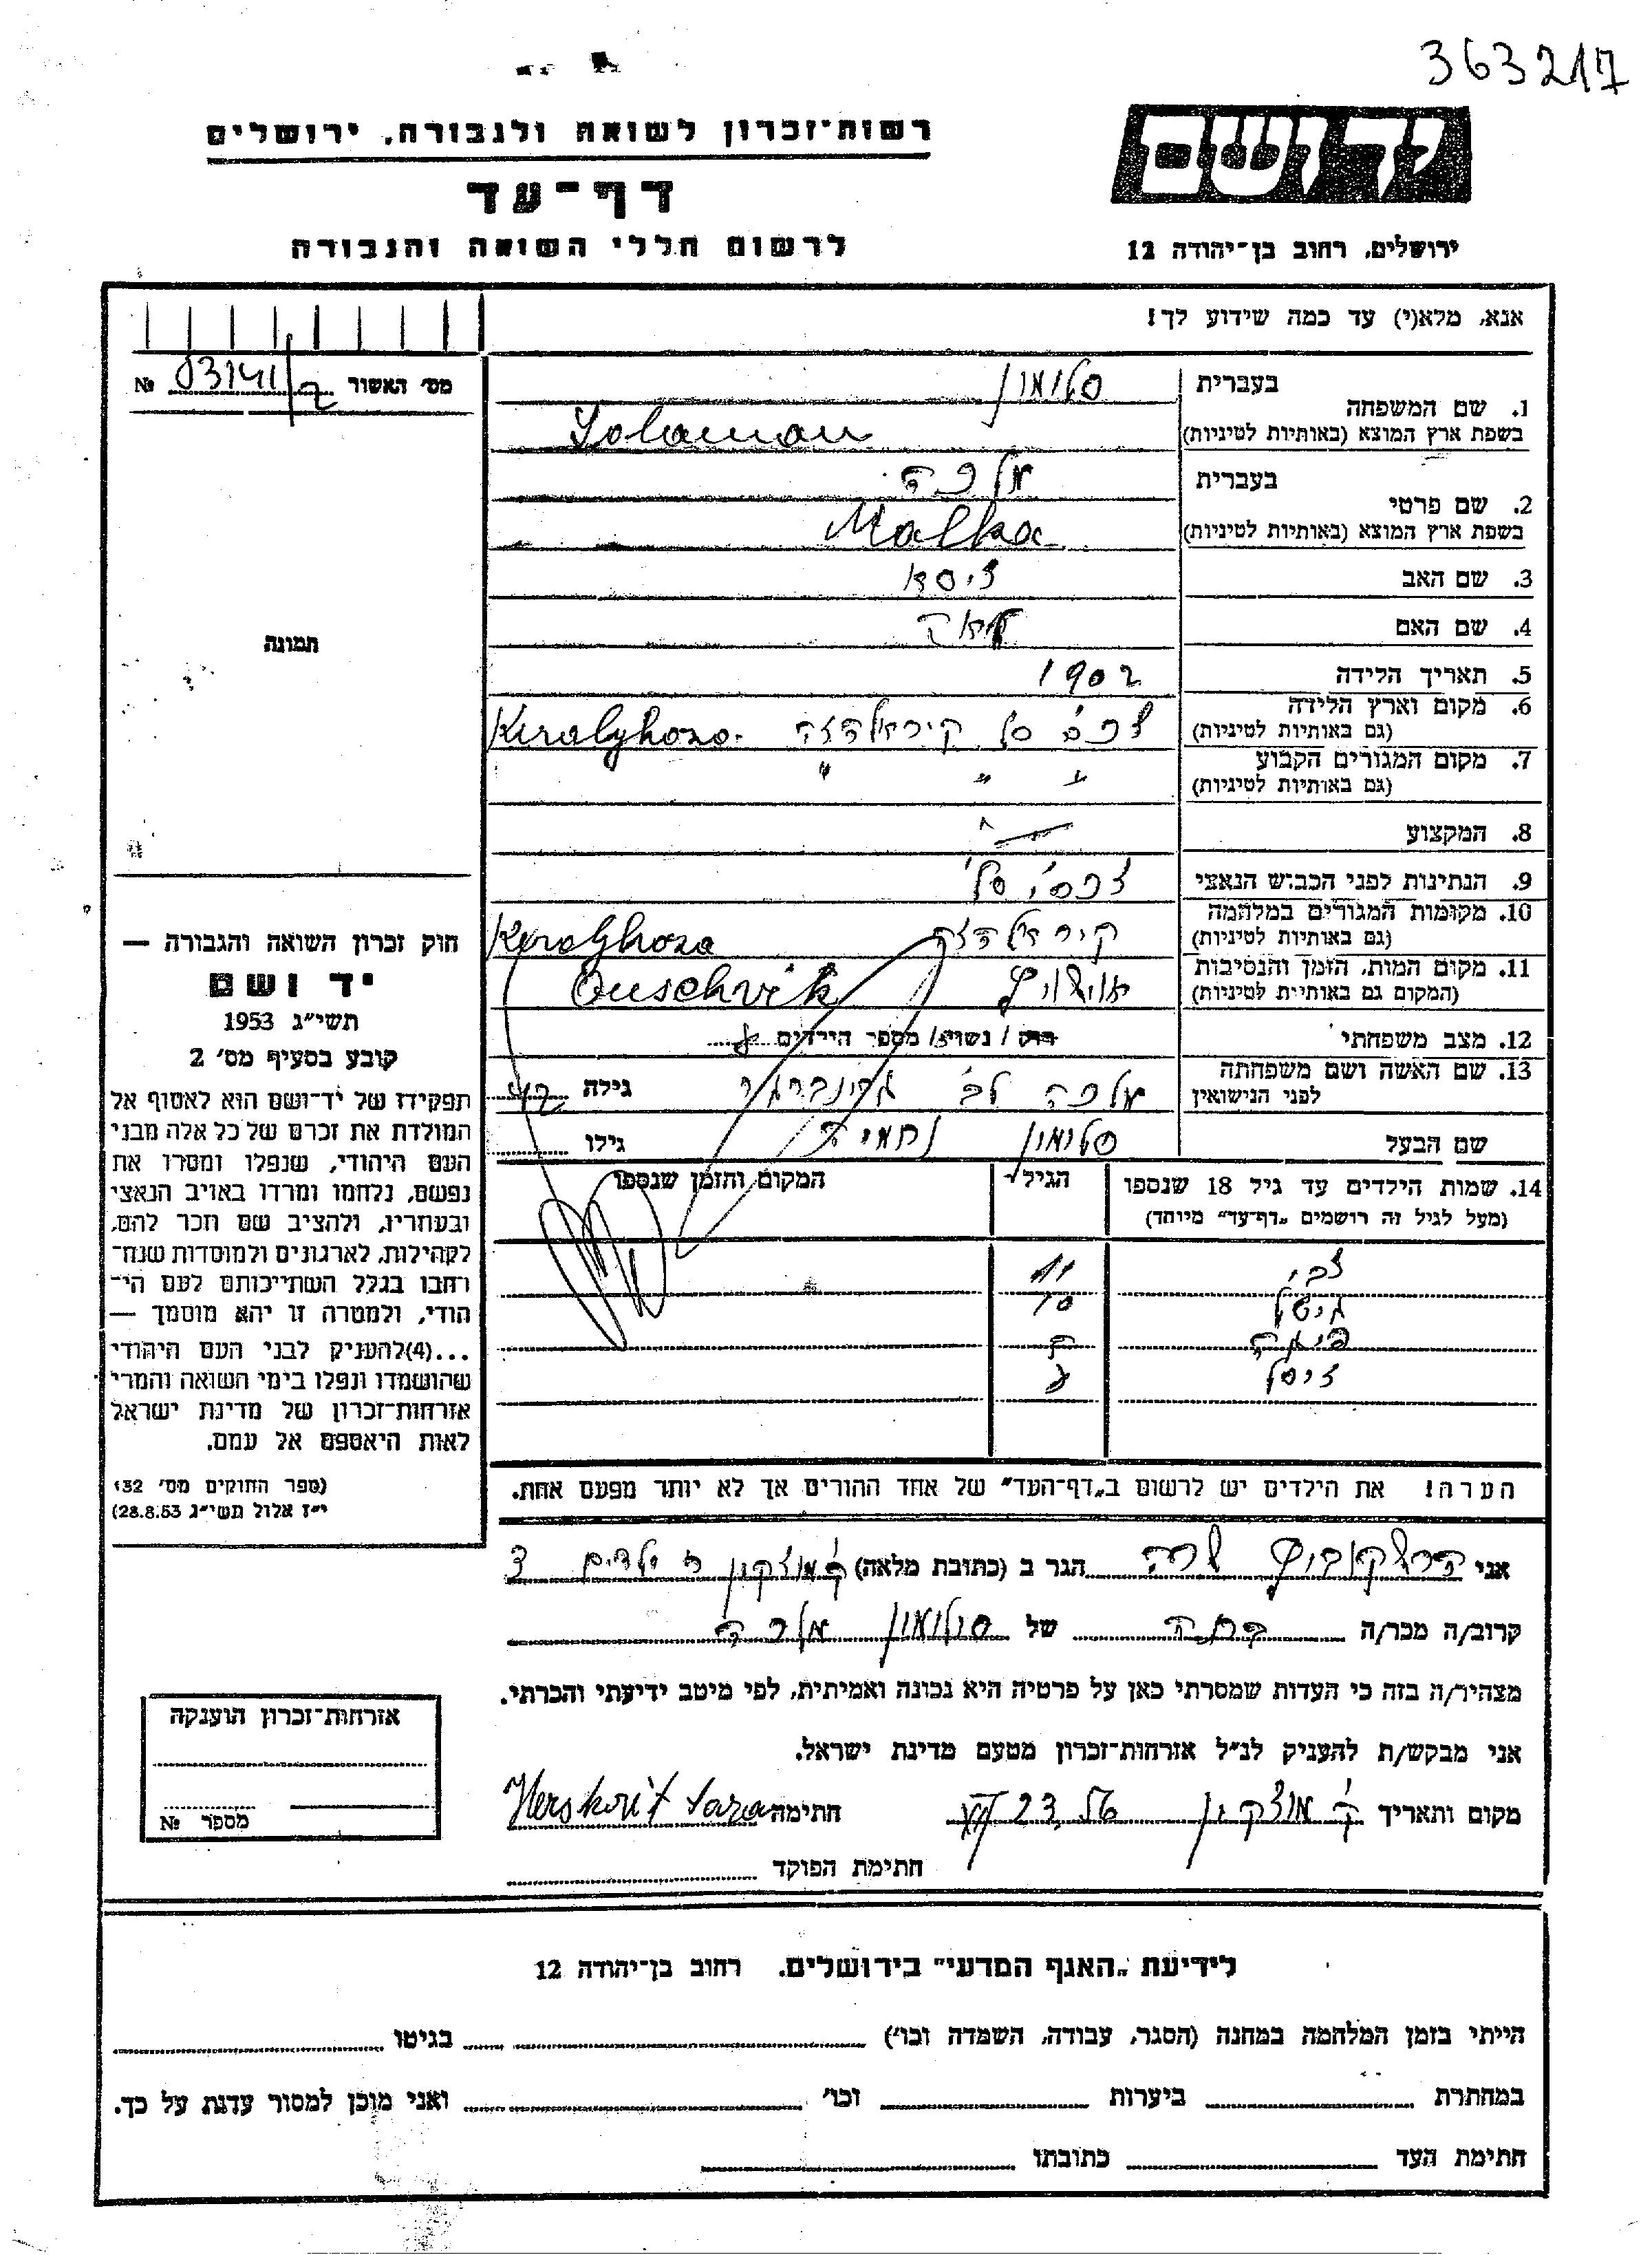 363217
רשות־זכרון לשואה ולגבורה, ירושלים
יד ושם
דף־עד
לרשום חללי השואה והגבורה
ירושלים, רחוב בן־יהודה 12
אנא, מלא(י) עד כמה שידוע לך!
מס׳ האשור 03141/2 №
תמונה
1. שם המשפחה
בעברית סלומון
בשפת ארץ המוצא (באותיות לטיניות) Solomon
2. שם פרטי
בעברית מלכה
בשפת ארץ המוצא (באותיות לטיניות) Malka
3. שם האב זיסא
4. שם האם
5. תאריך הלידה 1902
6. מקום וארץ הלידה
(גם באותיות לטיניות) צכוסל קיראלהזה Kiralyhoza
7. מקום המגורים הקבוע " " "
(גם באותיות לטיניות)
8. המקצוע —
9. הנתינות לפני הכבוש הנאצי
10. מקומות המגורים במלחמה
(גם באותיות לטיניות) קיראלהזה Keralyhoza
11. מקום המות, הזמן והנסיבות
(המקום גם באותיות לטיניות) אושויץ Ouschvik
12. מצב משפחתי רוק / נשוי / מספר הילדים
13. שם האשה ושם משפחתה
לפני הנישואין מלכה לב׳ גרינברגר גילה 42
שם הבעל סלומון נחמיה גילו
14. שמות הילדים עד גיל 18 שנספו הגיל המקום והזמן שנספו
(מעל לגיל זה רושמים „דף־עד״ מיוחד)
צבי 11
10
זיסל
הערה! את הילדים יש לרשום ב„דף־העד״ של אחד ההורים אך לא יותר מפעם אחת.
חוק זכרון השואה והגבורה —
יד ושם
תשי״ג 1953
קובע בסעיף מס׳ 2
תפקידו של יד־ושם הוא לאסוף אל
המולדת את זכרם של כל אלה מבני
העם היהודי, שנפלו ומסרו את
נפשם, נלחמו ומרדו באויב הנאצי
ובעוזריו, ולהציב שם וזכר להם,
לקהילות, לארגונים ולמוסדות שנח־
רחבו בגלל השתייכותם לעם הי־
הודי, ולמטרה זו יהא מוסמך —
...(4)להעניק לבני העם היהודי
שהושמדו ונפלו בימי השואה והמרי
אזרחות־זכרון של מדינת ישראל
לאות היאספם אל עמם.
(ספר החוקים מס׳ 132,
י״ז אלול תשי״ג 28.8.53)
אני הרשקוביץ שרה הגר ב (כתובת מלאה) ק׳ מוצקין
קרוב/ה מכר/ה בתה של סולומון מלכה
מצהיר/ה בזה כי העדות שמסרתי כאן על פרטיה היא נכונה ואמיתית, לפי מיטב ידיעתי והכרתי.
אני מבקש/ת להעניק לנ״ל אזרחות־זכרון מטעם מדינת ישראל.
מקום ותאריך ק׳ מוצקין 23 חתימה Herskovit Sara
חתימת הפוקד
אזרחות־זכרון הוענקה
מספר №
לידיעת „האגף המדעי״ בירושלים, רחוב בן־יהודה 12
הייתי בזמן המלחמה במחנה (הסגר, עבודה, השמדה וכו׳) בגיטו
במחתרת ביערות וכו׳ ואני מוכן למסור עדות על כך.
חתימת העד כתובתו